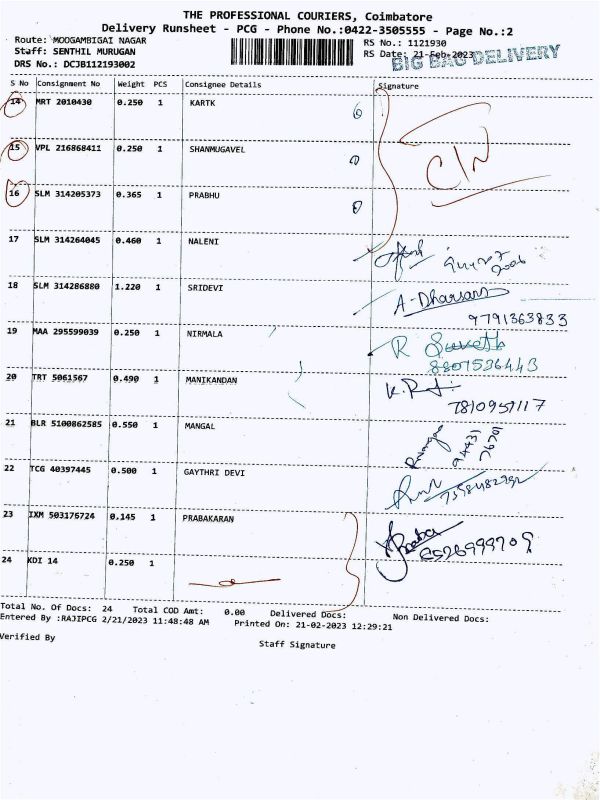 THE PROFESSIONAL COURIERS, Coimbatore
Delivery Runsheet - PCG - Phone No.:0422-3505555 - Page No.:2
Route: MOOGAMBIGAI NAGAR
Staff: SENTHIL MURUGAN
DRS No.: DCJB112193002
RS No.: 1121930
RS Date: 21-Feb-2023
BIG BAG DELIVERY
S No Consignment No Weight PCS Consignee Details Signature
14 MRT 2010430 0.250 1 KARTK
15 VPL 216868411 0.250 1 SHANMUGAVEL
C/N
16 SLM 314205373 0.365 1 PRABHU
17 SLM 314264045 0.460 1 NALENI
18 SLM 314286880 1.220 1 SRIDEVI
A-Dharsans
9791363833
19 MAA 295599039 0.250 1 NIRMALA
R
8807526443
20 TRT 5061567 0.490 1 MANIKANDAN
7810951117
21 BLR 5100862585 0.550 1 MANGAL
22 TCG 40397445 0.500 1 GAYTHRI DEVI
23 IXM 503176724 0.145 1 PRABAKARAN
24 KDI 14 0.250 1
Total No. Of Docs: 24 Total COD Amt: 0.00 Delivered Docs: Non Delivered Docs:
Entered By :RAJIPCG 2/21/2023 11:48:48 AM Printed On: 21-02-2023 12:29:21
Verified By
Staff Signature